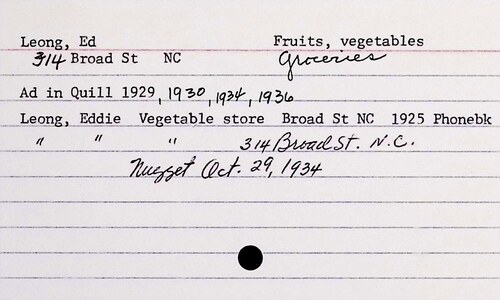 Leong, Ed Fruits, vegetables
314 Broad St NC Groceries
Ad in Quill 1929, 1930, 1934, 1936
Leong, Eddie Vegetable store Broad St NC 1925 Phonebk
" " " 314 Broad St. N.C.
Nugget Oct. 29, 1934